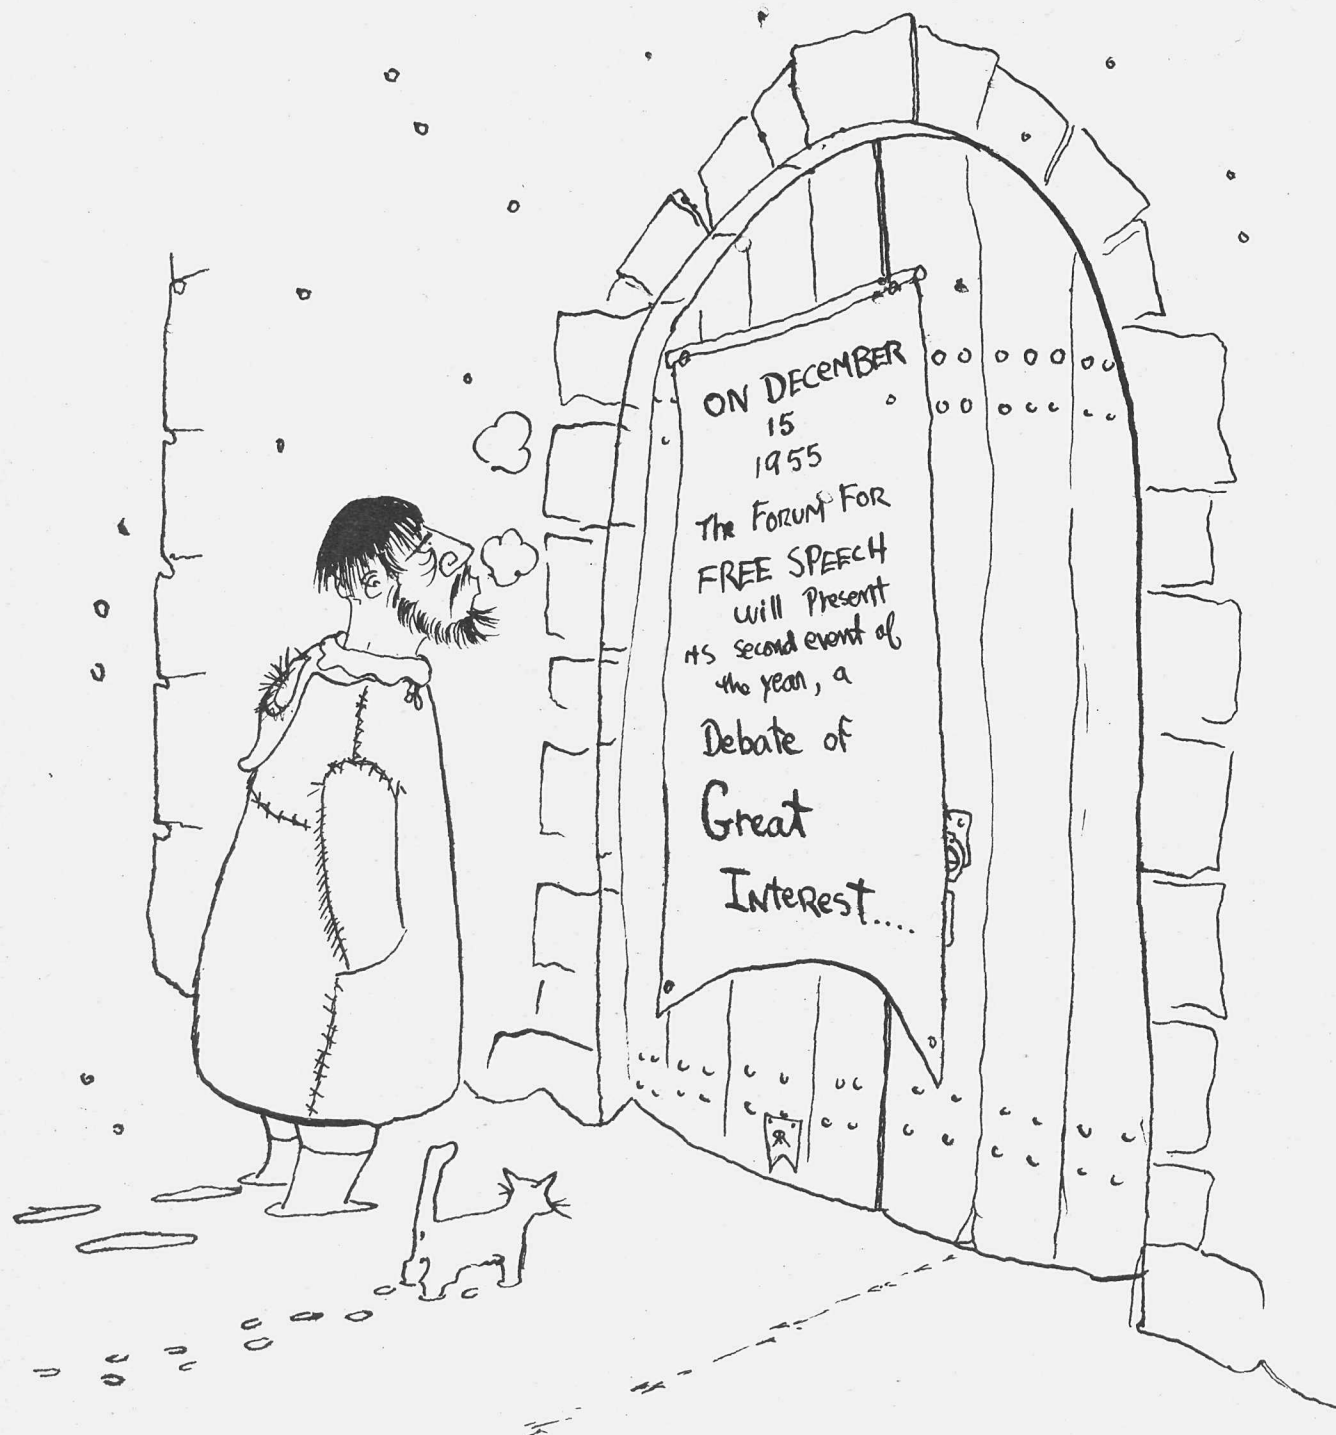 ON DECEMBER
15
1955
The FORUM FOR
FREE SPEECH
will Present
its second event of
the year, a
Debate of
Great
INteRest....